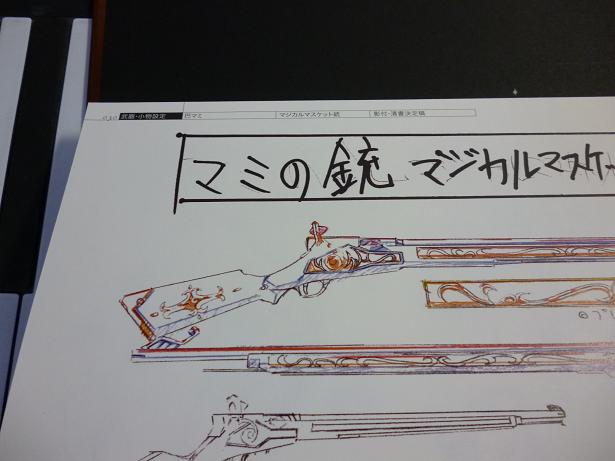 030 武器・小物設定 巴マミ マジカルマスケット銃 影付・清書決定稿
マミの銃 マジカルマスケッ